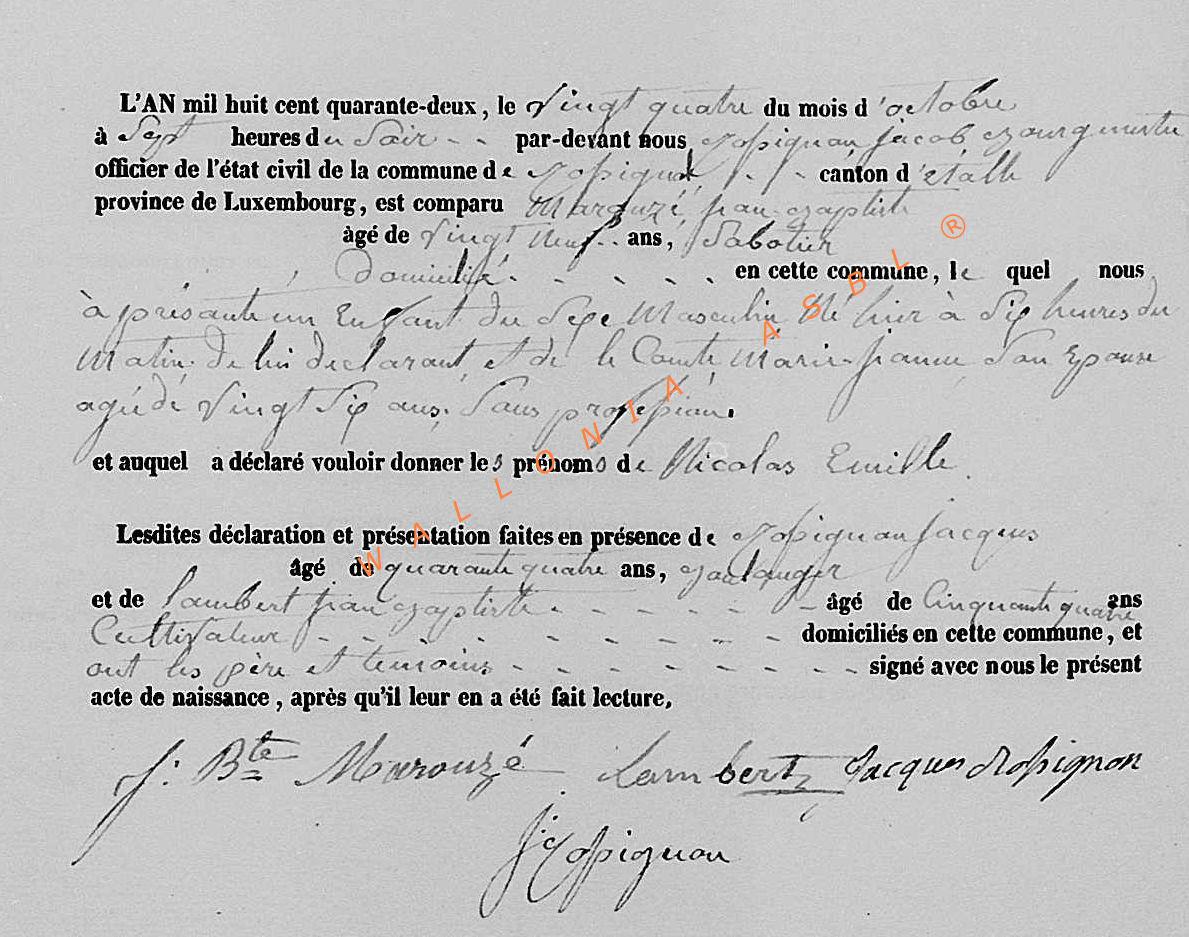 L'AN mil huit cent quarante-deux, le Vingt quatre du mois d'octobre
à Sept heures du Soir - - par-devant nous, Rossignon Jacob Bourgmestre
officier de l'état civil de la commune de Rossignol, - - canton d'étalle
province de Luxembourg, est comparu Marouzé, jean-Baptiste
âgé de Vingt neuf - - ans, Sabotier
, Domicilié - - - - - - en cette commune, lequel nous
à présanté un Enfant du Sexe Masculin, Né hier à Six heures du
Matin, de lui déclarant, et de le Comte, Marie-jeanne Son Epouse
agée de Vingt Six ans, Sans profession.
et auquel a déclaré vouloir donner les prénoms de Nicolas Emille
Lesdites déclaration et présentation faites en présence de Rossignon Jacques
âgé de quarante quatre ans, Boulanger
et de Lambert jean Baptiste - - - - - - âgé de Cinquante quatre ans
Cultivateur - - - - - - - - domiciliés en cette commune, et
ont les père et temoins - - - - - - - - signé avec nous le présent
acte de naissance, après qu'il leur en a été fait lecture.
J: Bte Marouzé Lambert Jacques Rossignon
J: Rossignon
WALLONIA ASBL ®